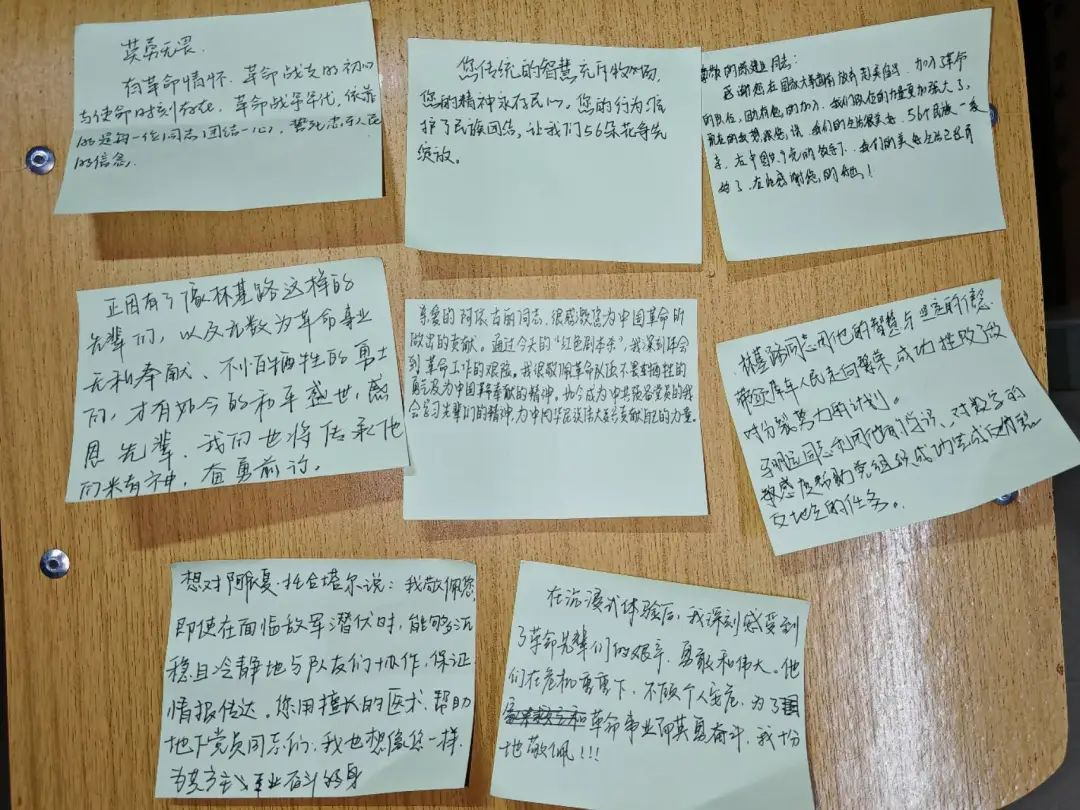 英勇无畏.
有革命情怀.革命战友的初心
与使命时刻存在.革命战争年代,依靠
的是每一位同志团结一心,誓死忠于人民
的信念.
您传统的智慧充斥牧场,
您的精神永存民心。您的行为维
护了民族团结,让我们56朵花争先
绽放。
同志:
感谢您在国家大事面前放弃
加入革命
的队伍,因为有您的加入,我们队伍的力量更加强大了,
现在的
我们的生活很美好.56个民族一家
亲,在中国共产党的领导下,我们的美好生活已经开
始了,在此感谢您的付出!
正因有了像林基路这样的
先辈们,以及无数为革命事业
无私奉献、不怕牺牲的勇士
们,才有如今的和平盛世,感
恩先辈,我们也将传承他
们未有神,奋勇前行。
亲爱的阿依古丽同志,很感激您为中国革命所
做出的贡献。通过今天的“红色剧本杀”,我深刻体会
到革命工作的艰险。我很敬佩革命队伍不畏牺牲的
勇气及为中国革命奉献的精神。如今成为中共预备党员的我
会学习先辈们的精神,为中国华民族伟大复兴贡献自己的力量。
林基路同志用他的智慧与坚定的信念.
带领库车人民走向繁荣,成功挫败了敌
对分裂势力的计划。
同志利用他的学识、对数字的
敏感度帮助党组织成功完成
任务。
想对阿依夏·托合塔尔说:我敬佩您,
即使在面临敌军潜伏时,能够沉
稳且冷静地与队友们协作,保证
情报传达。您用擅长的医术,帮助
地下党员同志们,我也想像您一样,
为共产主义事业奋斗终身
在沉浸式体验后,我深刻感受到
了革命先辈们的艰辛、勇敢和伟大。他
们在危机重重下,不顾个人安危,为了国
和革命事业而英勇奋斗,我十分
地敬佩!!!